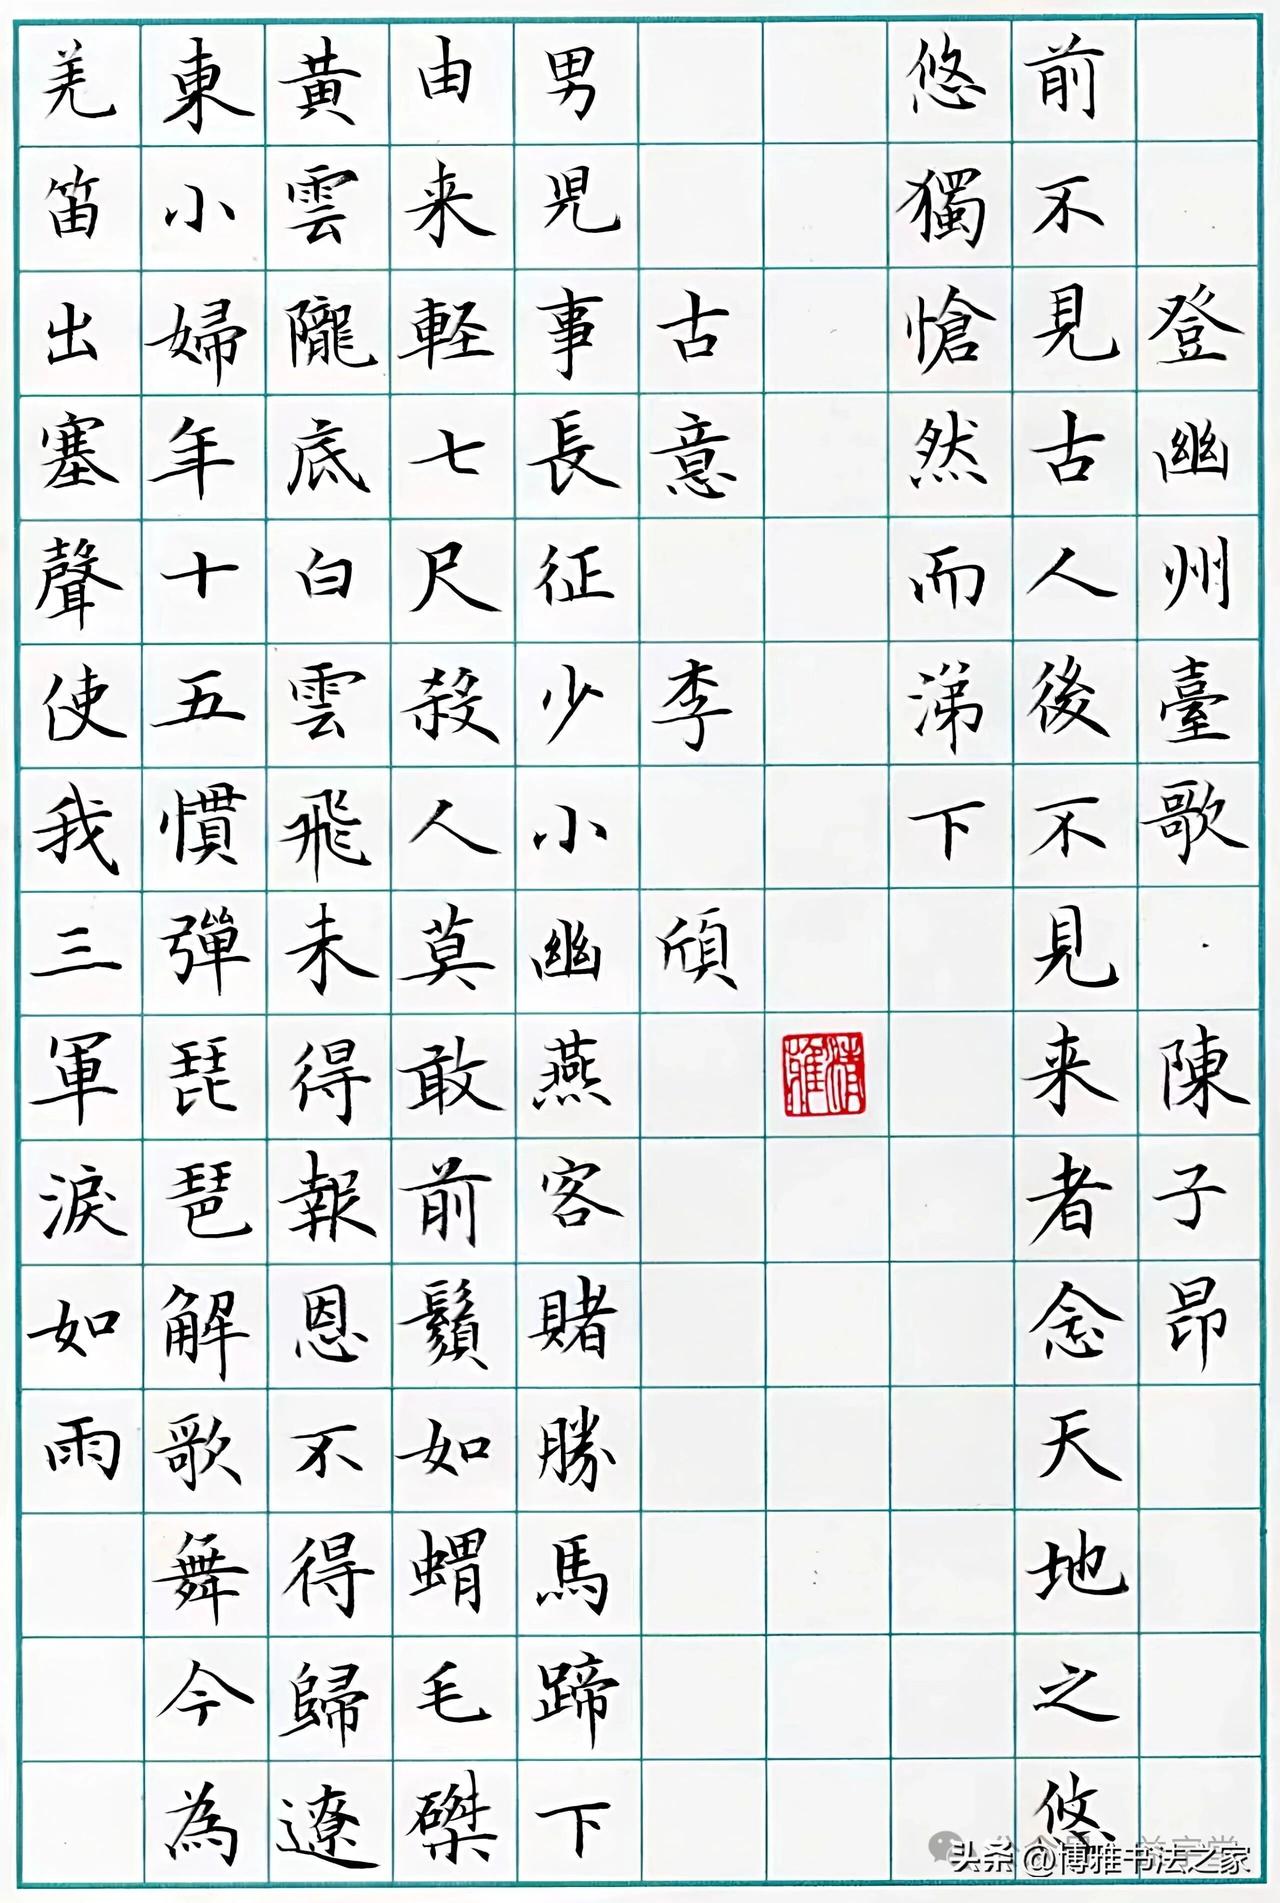 登幽州臺歌 陳子昂
前不見古人後不見来者念天地之悠
悠獨愴然而涕下
清雅
古意 李頎
男児事長征少小幽燕客賭勝馬蹄下
由来軽七尺殺人莫敢前鬚如蝟毛磔
黄雲隴底白雲飛未得報恩不得歸遼
東小婦年十五慣彈琵琶解歌舞今為
羌笛出塞聲使我三軍淚如雨
头条 @博雅书法之家